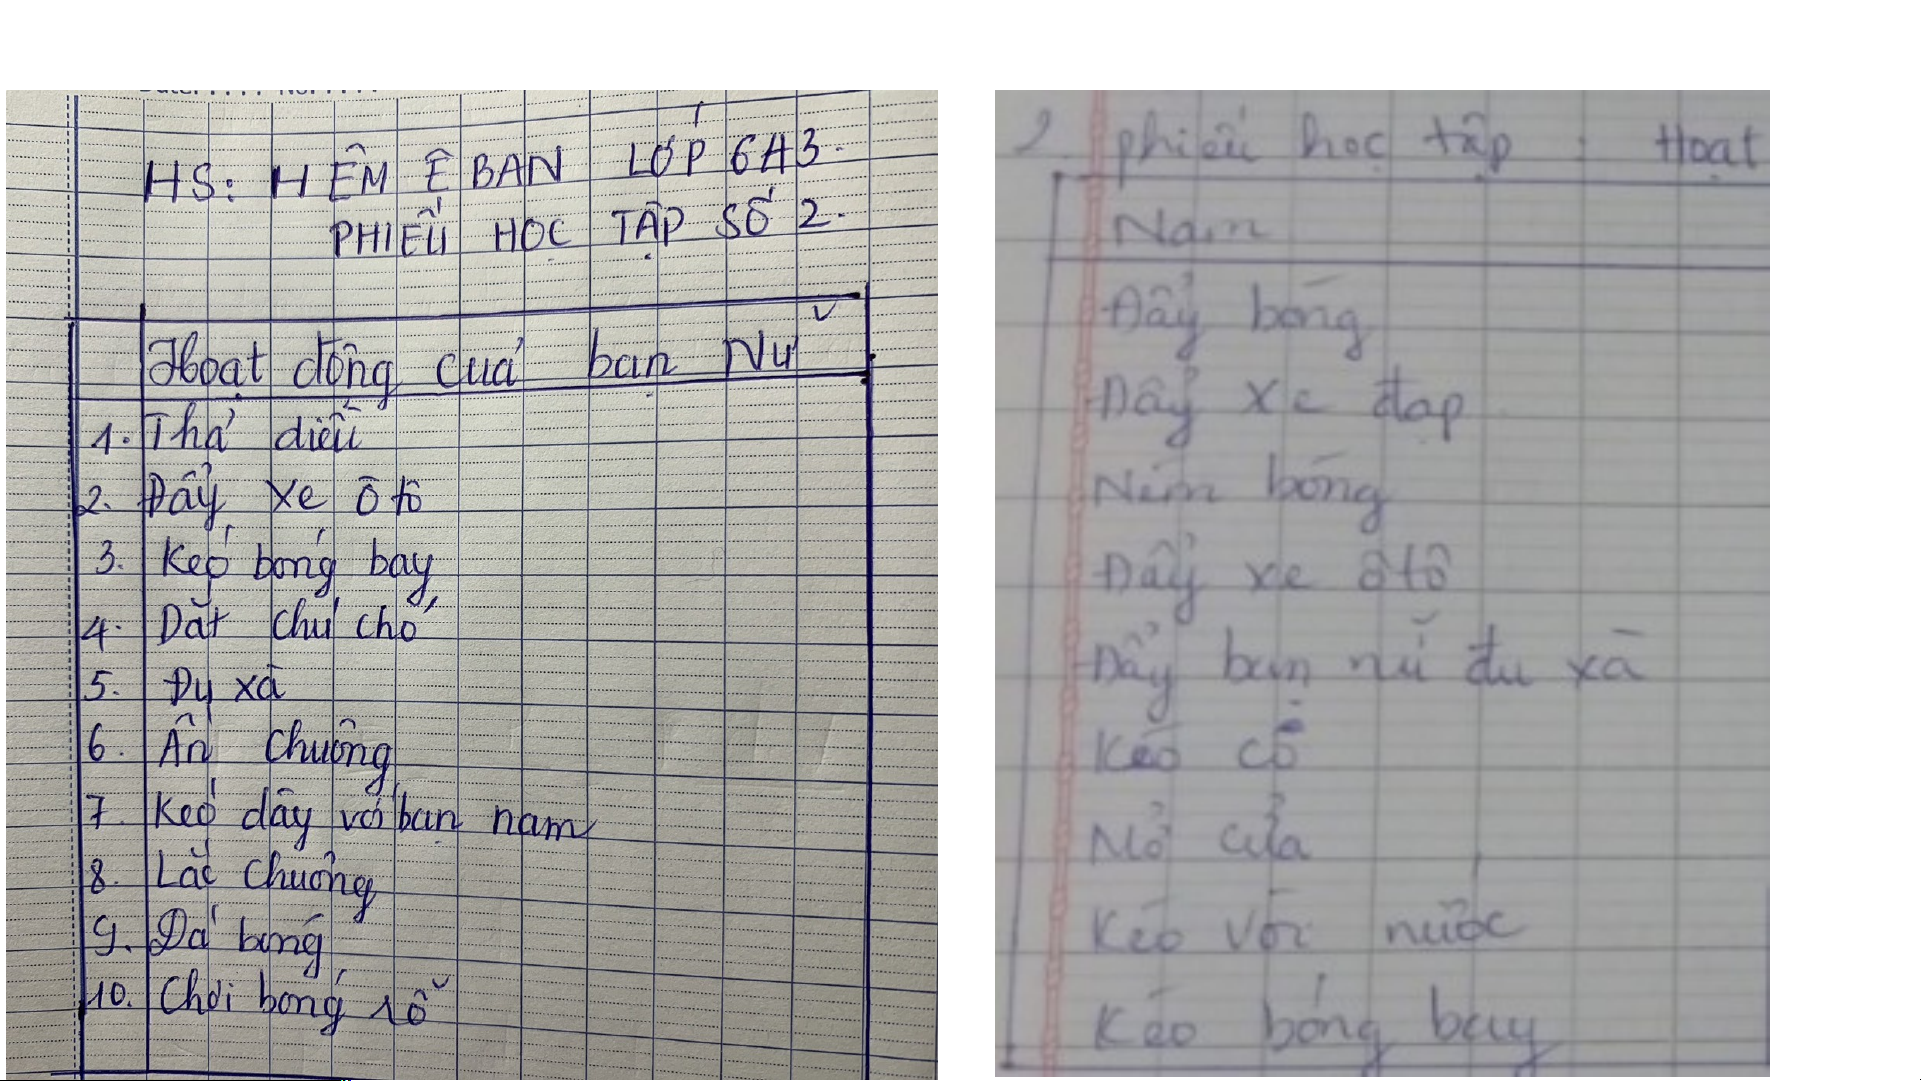 HS: H ÊM Ê BAN LỚP 6A3.
PHIẾU HỌC TẬP SỐ 2.
Hoạt động của bạn Nữ
1. Thả diều
2. Đẩy xe ô tô
3. Kéo bóng bay
4. Dắt chú chó
5. Đu xà
6. Ấn chuông
7. Kéo dây với bạn nam
8. Lắc chuông
9. Đá bóng
10. Chơi bóng rổ
2. phiếu học tập : Hoạt
Nam
Đẩy bóng
Đẩy xe đạp
Ném bóng
Đẩy xe ô tô
Đẩy bạn nữ đu xà
Kéo cờ
Mở cửa
Kéo vòi nước
Kéo bóng bay